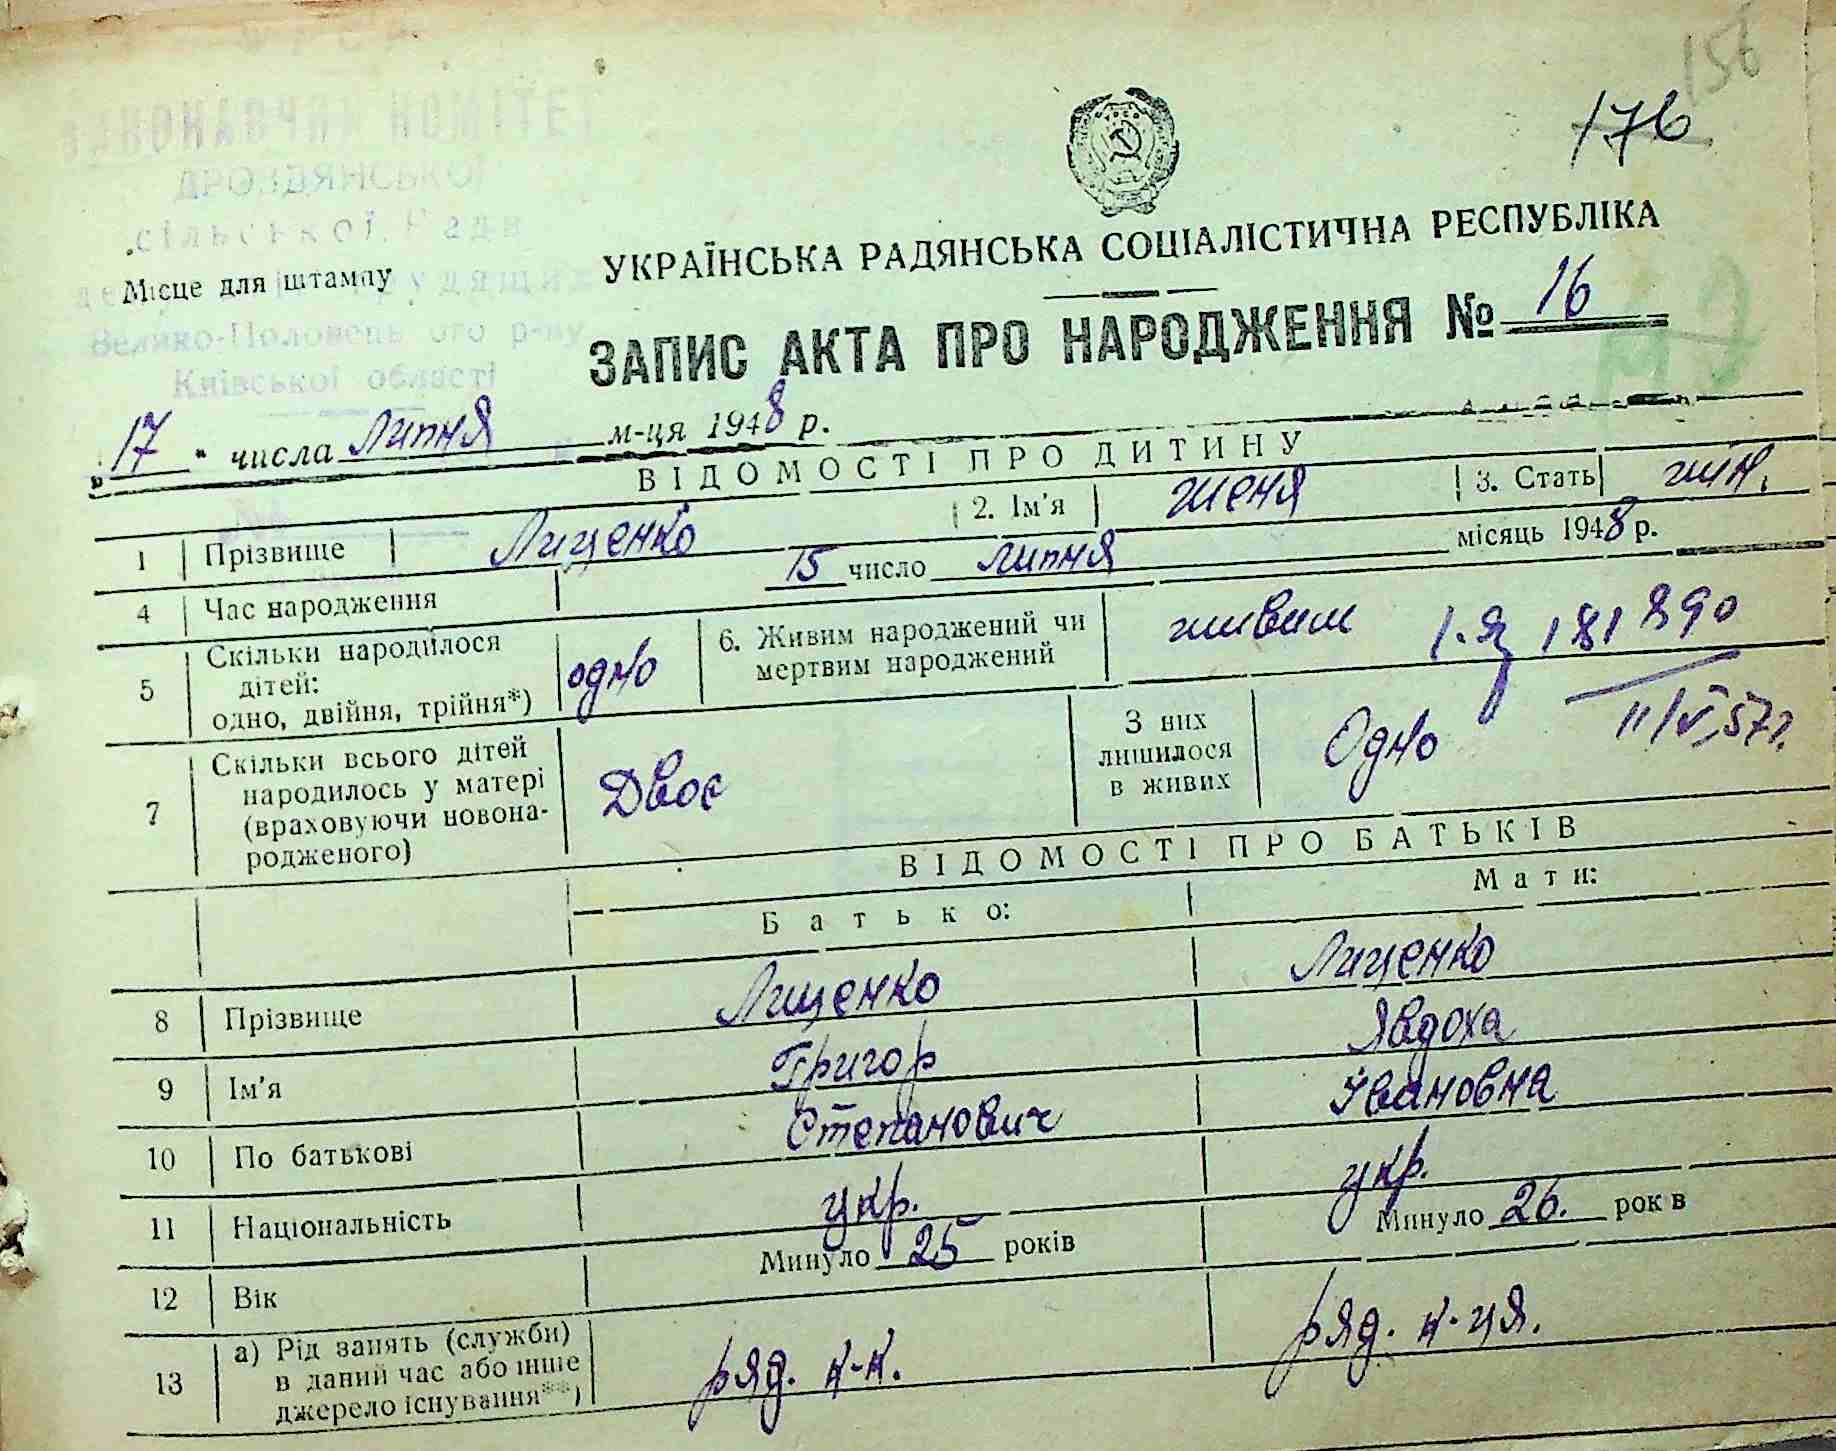 156
176
УРСР
ВИКОНАВЧИЙ КОМІТЕТ
ДРОЗДЯНСЬКОЇ
сільської Ради
Місце для штампу
трудящих
Велико-Половець ого р-ну
Київської області
УКРАЇНСЬКА РАДЯНСЬКА СОЦІАЛІСТИЧНА РЕСПУБЛІКА
ЗАПИС АКТА ПРО НАРОДЖЕННЯ № 16
„17" числа Липня м-ця 1948 р.
ВІДОМОСТІ ПРО ДИТИНУ
1 Прізвище Лищенко 2. Ім'я Женя 3. Стать жін.
4 Час народження 15 число липня місяць 1948 р.
5 Скільки народилося дітей: одно, двійня, трійня*) одно 6. Живим народжений чи мертвим народжений живим
181890
11/V 57 р.
7 Скільки всього дітей народилось у матері (враховуючи новона-родженого) Двоє З них лишилося в живих Одно
ВІДОМОСТІ ПРО БАТЬКІВ
Батько: Мати:
8 Прізвище Лищенко Лищенко
9 Ім'я Григор Явдоха
10 По батькові Степанович Івановна
11 Національність укр. укр.
12 Вік Минуло 25 років Минуло 26. рок в
13 а) Рід занять (служби) в даний час або інше джерело існування**) ряд. к-к. ряд. к-ця.